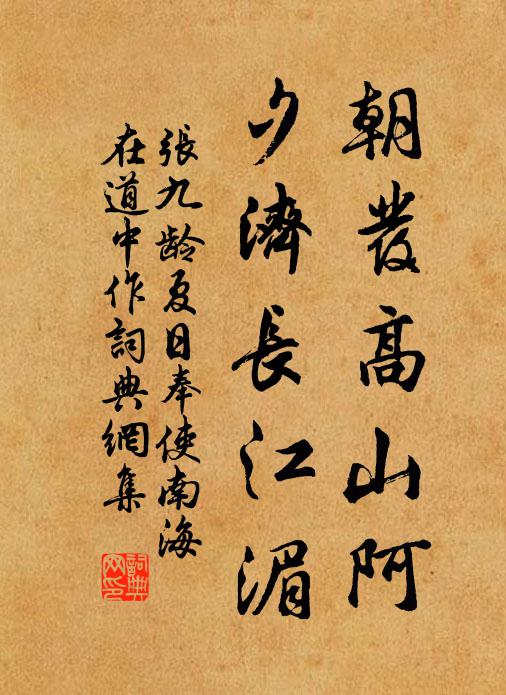 朝發高山阿
夕濟長江湄
張九龄夏日奉使南海
在道中作詞典網集
詞典网印